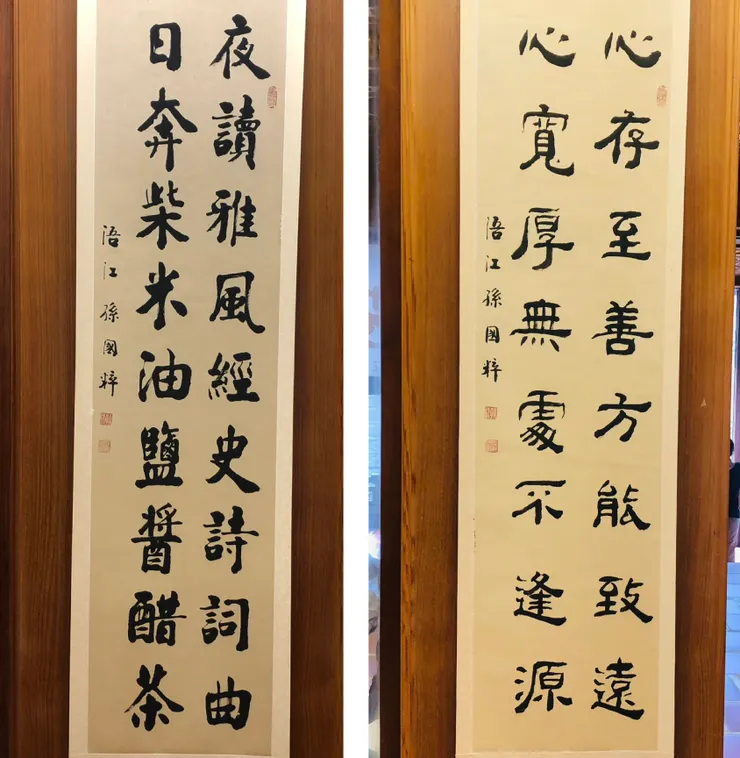 夜讀雅風經史詩詞曲
日奔柴米油鹽醬醋茶
浯江孫國粹
心存至善方能致遠
心寬厚無處不逢源
浯江孫國粹